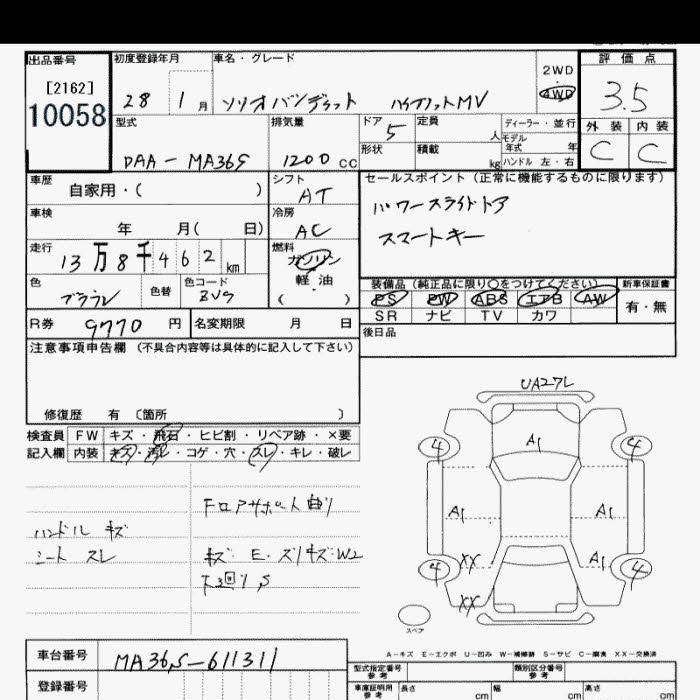 出品番号 初度登録年月 車名・グレード 評価点
[2162]
10058
28 1月 ソリオバンディット ハイブリットMV
2WD
4WD
3.5
型式 排気量 ドア 定員 ディーラー・並行 外装 内装
DAA-MA36S 1200cc 5 人 モデル年式 年
形状 積載 kg ハンドル 左・右
C C
車歴 自家用・( ) シフト AT セールスポイント(正常に機能するものに限ります)
パワースライドドア
スマートキー
車検 年 月( 日) 冷房 AC
走行 13万8千462km 燃料 ガソリン
軽油
( )
色 ブラウン 色替 色コード
装備品(純正品に限り○をつけてください) 新車保証書
PS PW ABS エアB AW 有・無
SR ナビ TV カワ
R券 9770円 名変期限 月 日
後日品
注意事項申告欄(不具合内容等は具体的に記入して下さい)
修復歴 有〔箇所 〕
検査員 FW キズ・飛石・ヒビ割・リペア跡・×要
記入欄 内装 キズ・汚レ・コゲ・穴・スレ・キレ・破レ
フロアサポート曲リ
ハンドル キズ
シート スレ
キズ・E・スリキズ・W2
UA27L
A1
4 4
A1 A1
4 XX A1 4
XX
スペア
A-キズ E-エクボ U-凹み W-補修跡 S-サビ C-腐食 XX-交換済
車台番号 MA36S-611311
型式指定番号 参考 類別区分番号 参考
登録番号
車庫証明用 参考 長さ cm 幅 cm 高さ cm